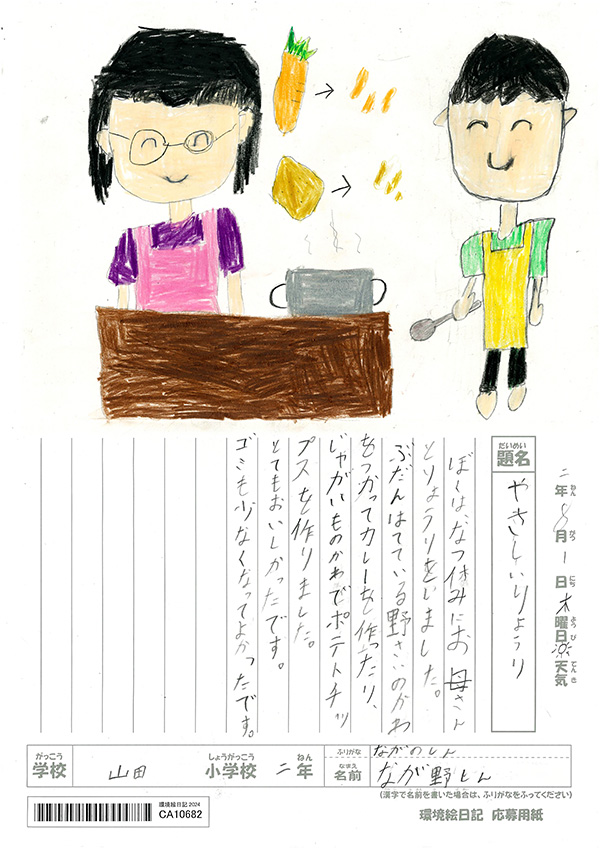 二年8月1日木曜日天気
ねん がつ にち ようび てんき
だいめい
題名
やさしいりょうり
ぼくは、なつ休みにお母さん
とりょうりをしました。
ふだんはすてている野さいのかわ
をつかってカレーを作ったり、
じゃがいものかわでポテトチッ
プスを作りました。
とてもおいしかったです。
ゴミも少なくなってよかったです。
がっこう
学校
山田
しょうがっこう
小学校
二
ねん
年
ふりがな
ながのしん
なまえ
名前
なが野しん
(漢字で名前を書いた場合は、ふりがなをふってください)
環境絵日記 2024
CA10682
環境絵日記 応募用紙